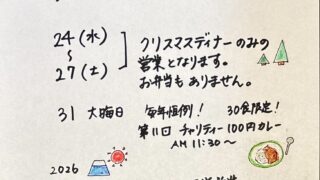 24(水)
~
27(土)
クリスマスディナーのみの
営業となります。
お弁当もありません。
31 大晦日 毎年恒例! 30食限定!
第11回 チャリティー100円カレー
AM 11:30~
2026